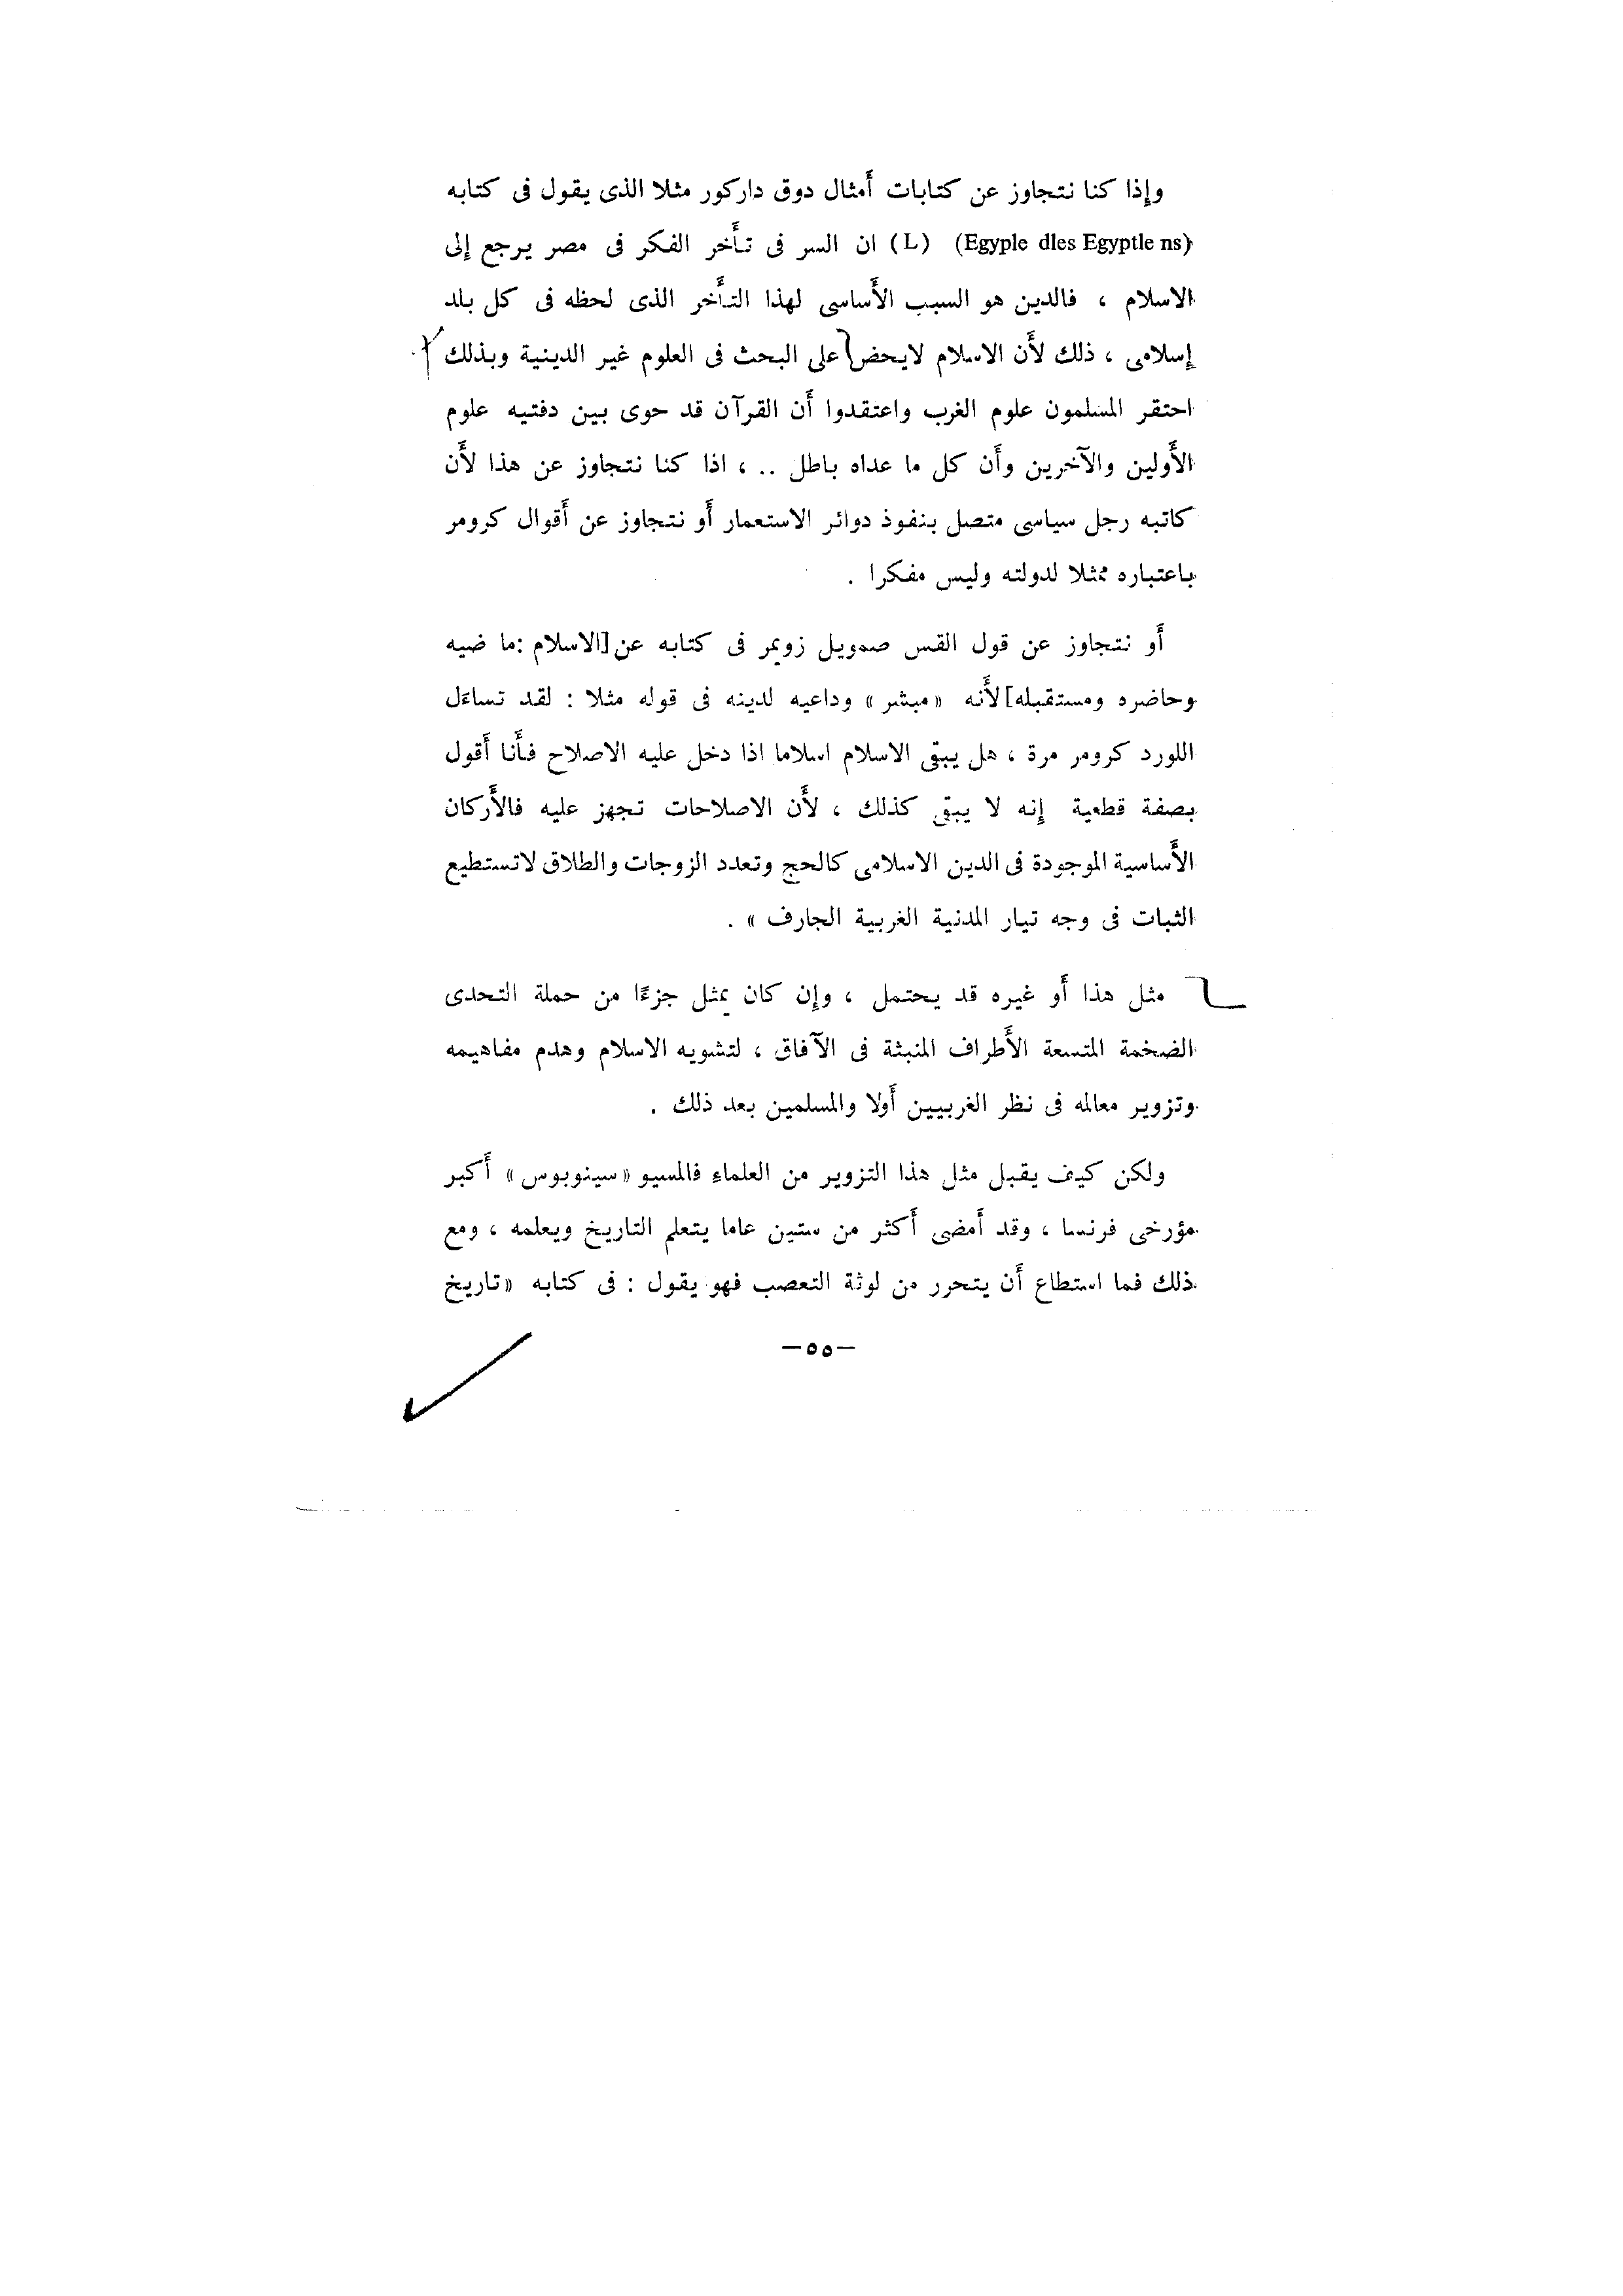 وإذا كنا نتجاوز عن كتابات أمثال دوق داركور مثلا الذى يقول فى كتابه
(Egyple dles Egyptle ns) (L) ان السر فى تأخر الفكر فى مصر يرجع إلى
الاسلام ، فالدين هو السبب الأساسى لهذا التأخر الذى لحظه فى كل بلد
إسلامى ، ذلك لأن الاسلام لايحض على البحث فى العلوم غير الدينية وبذلك
احتقر المسلمون علوم الغرب واعتقدوا أن القرآن قد حوى بين دفتيه علوم
الأولين والآخرين وأن كل ما عداه باطل .. ، اذا كنا نتجاوز عن هذا لأن
كاتبه رجل سياسى متصل بنفوذ دوائر الاستعمار أو نتجاوز عن أقوال كرومر
باعتباره ممثلا لدولته وليس مفكرا .
أو نتجاوز عن قول القس صمويل زويمر فى كتابه عن [الاسلام : ما ضيه
وحاضره ومستقبله] لأنه « مبشر » وداعيه لدينه فى قوله مثلا : لقد تساءل
اللورد كرومر مرة ، هل يبقى الاسلام اسلاما اذا دخل عليه الاصلاح فأنا أقول
بصفة قطعية إنه لا يبقى كذلك ، لأن الاصلاحات تجهز عليه فالأركان
الأساسية الموجودة فى الدين الاسلامى كالحج وتعدد الزوجات والطلاق لاتستطيع
الثبات فى وجه تيار المدنية الغربية الجارف » .
مثل هذا أو غيره قد يحتمل ، وإن كان يمثل جزءًا من حملة التحدى
الضخمة المتسعة الأطراف المنبثة فى الآفاق ، لتشويه الاسلام وهدم مفاهيمه
وتزوير معالمه فى نظر الغربيين أولا والمسلمين بعد ذلك .
ولكن كيف يقبل مثل هذا التزوير من العلماء فالمسيو « سينوبوس » أكبر
مؤرخى فرنسا ، وقد أمضى أكثر من ستين عاما يتعلم التاريخ ويعلمه ، ومع
ذلك فما استطاع أن يتحرر من لوثة التعصب فهو يقول : فى كتابه « تاريخ
— ٥٥ —